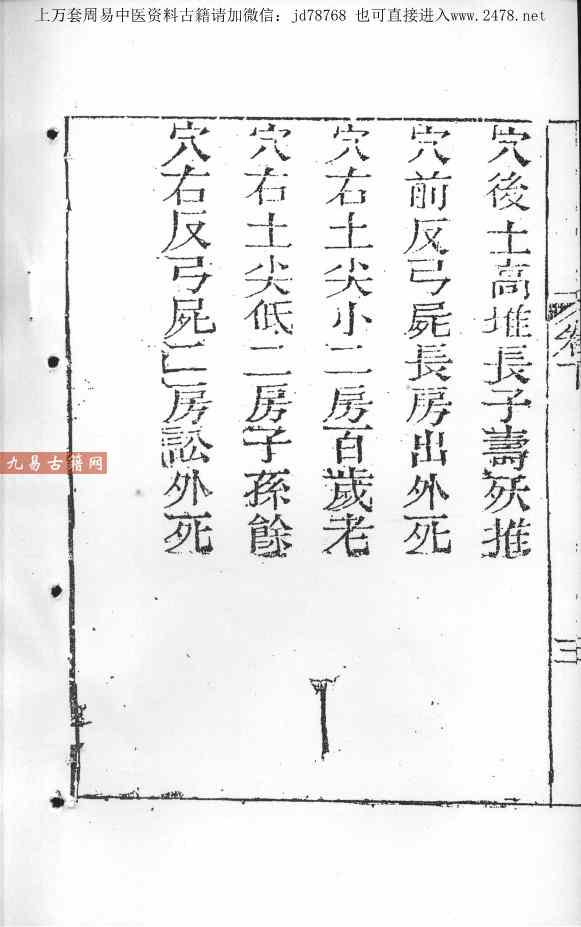 上万套周易中医资料古籍请加微信：jd78768 也可直接进入www.2478.net
卷下
三
穴後土高堆長子壽殀推
穴前反弓屍長房出外死
穴右土尖小二房百歲老
穴右土尖低二房子孫餘
穴右反弓屍二房訟外死
九易古籍网